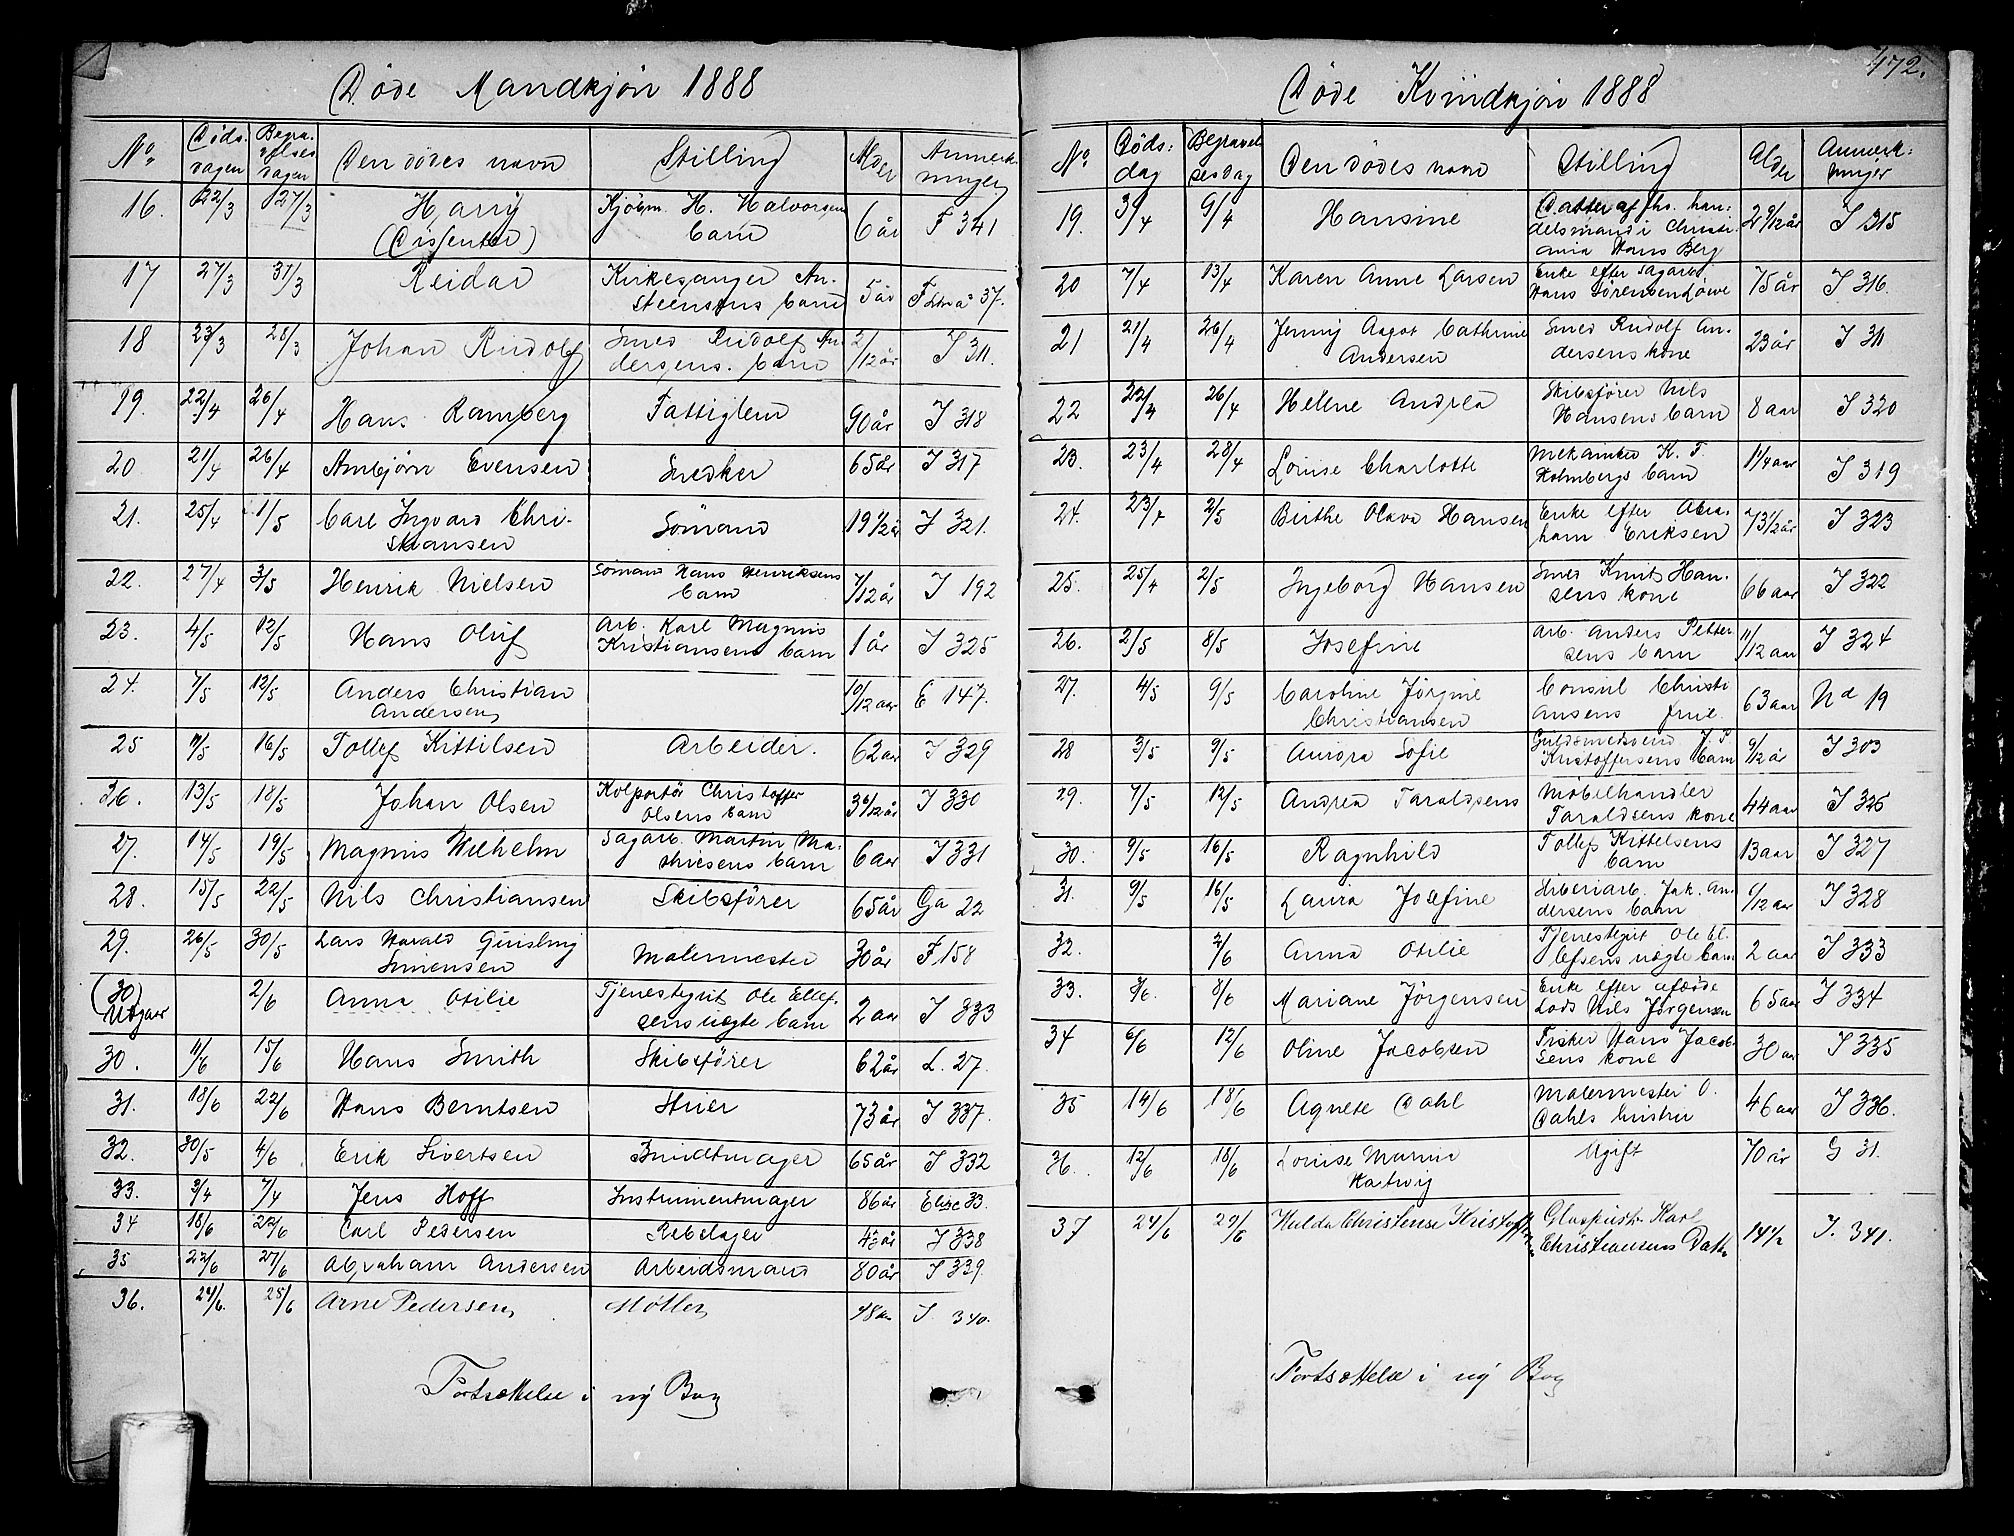 472.
Døde Mandkjön 1888
No. Döds-dagen Begravelses dagen Den dödes navn Stilling Alder Anmerkninger
16. 22/3 27/3 Harry Kjöbm. H. Halvorsens 6 år F 341
(Dissenter) barn
17 27/3 31/3 Reidar Kirkesanger An- 5 år F 37.
steensens barn
18 23/3 28/3 Johan Rudolf Smed Rudolf An- 2/12 år I 311.
dersens. barn
19. 22/4 26/4 Hans Ramberg Fattiglem 90 år I 318
20. 21/4 26/4 Arnbjörn Evensen Snedker 65 år I 317
21. 25/4 1/5 Carl Ingvard Chri- Sömand 19 1/2 år I 321.
stiansen
22. 27/4 3/5 Henrik Nielsen Sömand Hans Henriksens 7/12 år I 192
barn
23. 4/5 12/5 Hans Oluf Arb. Karl Magnus 1 år I 325
Kristiansens barn
24. 7/5 12/5 Anders Christian 10/12 aar E 147.
Andersen
25 11/5 16/5 Tollef Kittilsen Arbeider. 62 aar I 329
26. 13/5 18/5 Johan Olsen Kolportör Christoffer 3 6/12 år I 330
Olsens barn
27. 14/5 19/5 Magnus Wilhelm Sagarb. Martin Ma- 6 aar I 331
thiesens barn
28. 15/5 22/5 Nils Christiansen Skibsförer 65 år Ga 22
29. 26/5 30/5 Lars Harald Quisling Malermester 30 år F. 158
Simensen
(30) 2/6 Anna Otilie Tjenestegut Ole Ellef- 2 aar I 333
Udgaar sens uægte barn
30. 11/6 15/6 Hans Smith Skibsförer 62 år L. 27.
31. 18/6 22/6 Hans Berntsen Struer 73 år I 337.
32. 30/5 4/6 Erik Sivertsen Bundtmager 65 år I 332
33. 3/4 7/4 Jens Hoff Instrumentmager 86 år 33.
34 18/6 22/6 Carl Pedersen Rebslager 42 år I 338
35 23/6 27/6 Abraham Andersen Arbeidsmand 80 år I 339.
36. 24/6. 25/6 Arne Pedersen Møller 48 I. 340.
Fortsættelse i ny Bog
Døde Kvindkjön 1888
No. Döds-dag Begravelsesdag Den dödes navn Stilling Alder Anmerkninger
19. 3/4 9/4 Hansine Datter af fhs. han- 2 9/12 år I 315
delsmand i Christi-
ania Hans Berg
20 7/4 13/4 Karen Anne Larsen Enke efter Sagarb. 75 år I 316.
Hans Sörensen Löwe
21 21/4 26/4 Jenny Aagot Cathrine Smed Rudolf An- 23 år I 311
Andersen dersens kone
22 22/4 26/4 Helene Andrea Skibsförer Nils 8 aar I 320
Hansens barn
23. 23/4 28/4 Louise Charlotte Mekaniker K. F. 1 1/4 aar I 319
Holmbergs barn
24. 23/4 2/5 Birthe Olava Hansen Enke efter Abra- 73 1/2 år I 323
ham Eriksen
25. 25/4 2/5 Ingeborg Hansen Smed Knut Han- 66 aar I 322
sens kone
26. 2/5 8/5 Josefine Arb. Anders Petter- 11/12 aar I 324
sens barn
27. 4/5 9/5 Caroline Jörgine Consul Christi- 63 aar Nd 19
Christiansen ansens frue.
28 3/5 9/5 Aurora Sofie Guldsmedsvend J. P. 9/12 år I 303
Kristoffersens barn
29. 7/5 12/5 Andrea Taraldsens Möbelhandler 44 aar I 326
Taraldsens kone
30. 9/5 16/5 Ragnhild Tollef Kittelsens 13 aar I 327
barn
31. 9/5 16/5 Laura Josefine Sliberiarb. Jak. An- 6/12 aar I 328
dersens barn
32. 2/6 Anna Otilie Tjenestegut Ole El- 2 aar I 333
lefsens uægte barn
33. 2/6. 8/6 Mariane Jörgensen Enke efter afdöde 65 aar I 334
Lods Nils Jörgensen
34 6/6 12/6 Oline Jacobsen Fisker Hans Jacob- 30 aar I 335
sens kone
35 14/6 18/6 Agnete Dahl Malermester O. 46 aar I 336.
Dahls hustru
36. 12/6 18/6 Louise Marine Ugift 70 år G 31.
Hartvig
37 24/6 29/6 Hulda Christense Kristoffersen Glaspust. Karl 14 1/2 I. 341.
Christiansens Datter
Fortsættelse i ny Bog